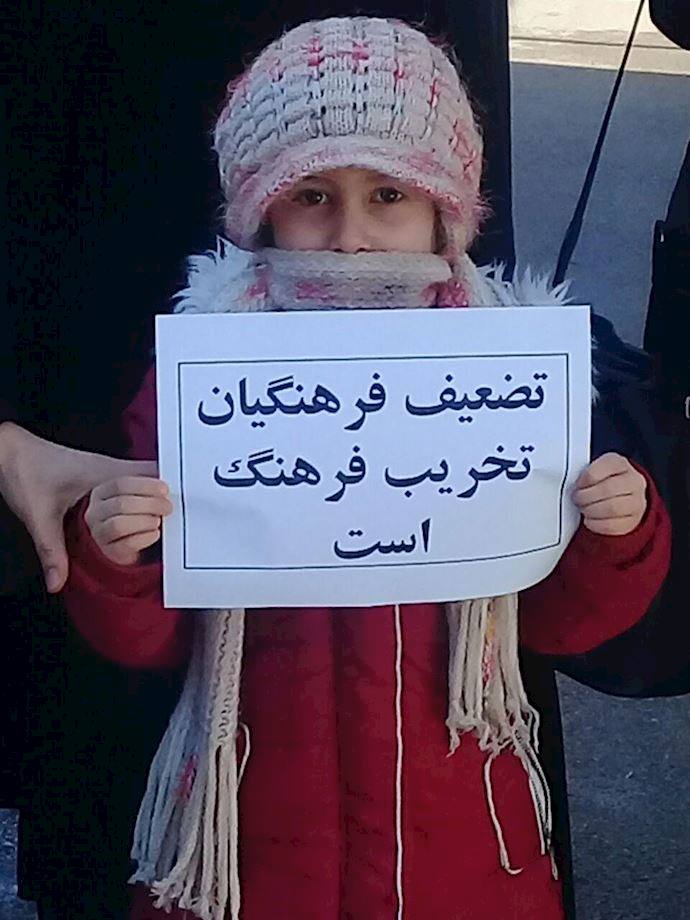 تضعیف فرهنگیان
تخریب فرهنگ
است